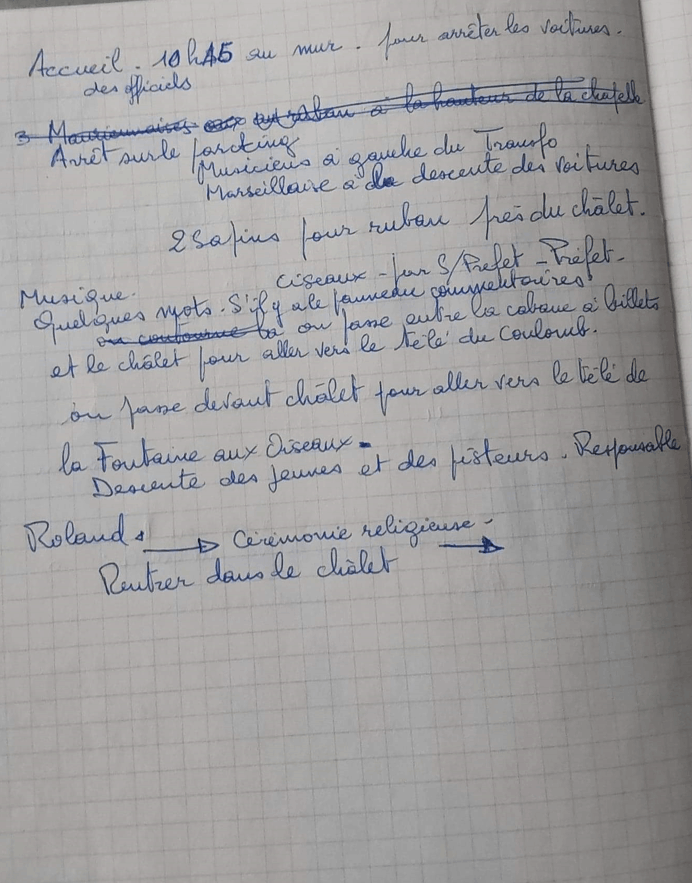 Accueil. 10h45 au mur. pour arrêter les voitures.
des officiels
3 Mauriennaises au ruban à la hauteur de la chapelle
Arrêt sur le parcking
Musiciens à gauche du Transfo
Marseillaise à la descente des voitures
2 Sapins pour ruban près du châlet.
Ciseaux - par S/Prefet - Préfet -
Musique.
Quelques mots. S'il y a le panneau commentaires
on contourne la on passe entre la cabane à billets
et le châlet pour aller vers le télé du Coulomb.
on passe devant châlet pour aller vers le télé de
la Fontaine aux Oiseaux -
Descente des jeunes et des pisteurs. Responsable
Roland. → Cérémonie religieuse - →
Rentrer dans le châlet